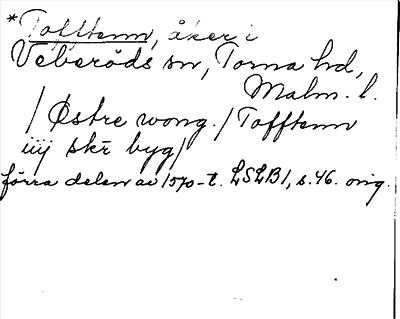 *Tofftenn, åker i
Veberöds sn, Torna hd,
Malm. l.
/ Østre wong. / Tofftenn
iiij skr byg /
förra delen av 1570-t. LSLB1, s. 46. orig.